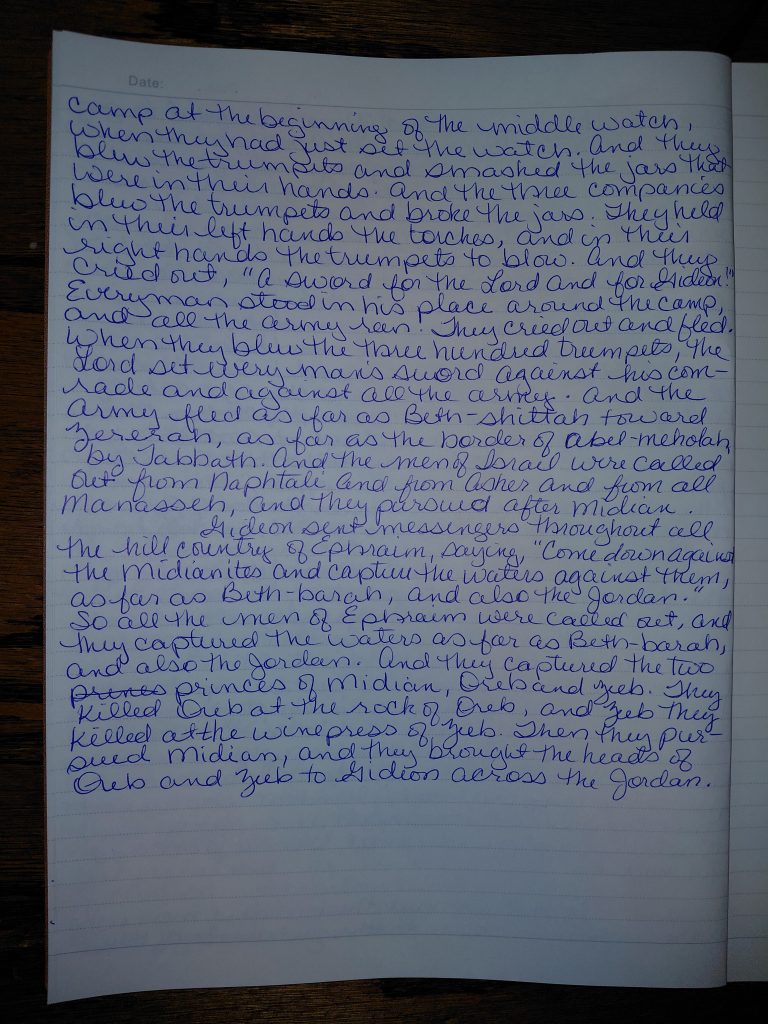 Date:
camp at the beginning of the middle watch,
when they had just set the watch. And they
blew the trumpets and smashed the jars that
were in their hands. And the three companies
blew the trumpets and broke the jars. They held
in their left hands the torches, and in their
right hands the trumpets to blow. And they
cried out, "A sword for the Lord and for Gideon!"
Everyman stood in his place around the camp,
and all the army ran! They cried out and fled.
When they blew the three hundred trumpets, the
Lord set every man's sword against his com-
rade and against all the army. And the
army fled as far as Beth-shittah toward
Zererah, as far as the border of Abel-meholah,
by Tabbath. And the men of Israel were called
out from Naphtali and from Asher and from all
Manasseh, and they pursued after Midian.
Gideon sent messengers throughout all
the hill country of Ephraim, saying, "Come down against
the Midianites and capture the waters against them,
as far as Beth-barah, and also the Jordan."
So all the men of Ephraim were called out, and
they captured the waters as far as Beth-barah,
and also the Jordan. And they captured the two
princes princes of Midian, Oreb and Zeeb. They
killed Oreb at the rock of Oreb, and Zeeb they
killed at the winepress of Zeeb. Then they pur-
sued Midian, and they brought the heads of
Oreb and Zeeb to Gideon across the Jordan.